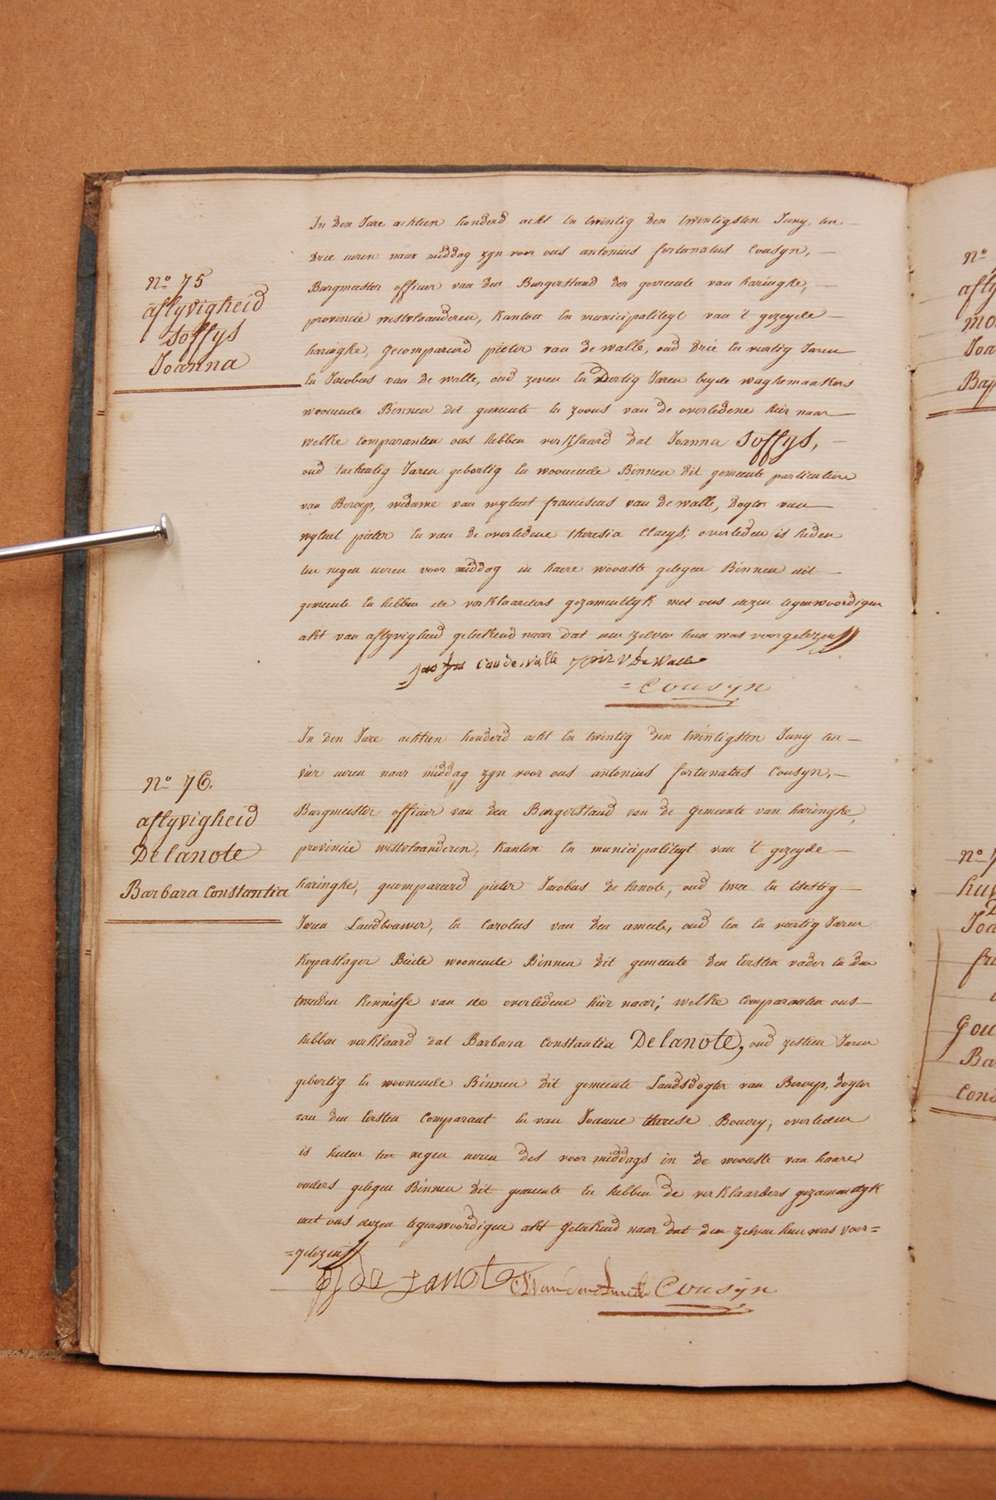 N.° 75
aflyvigheid
Soffys
Joanna
In den Jare achtien honderd acht en twintig den twintigsten Juny ten
drie uren naar middag zyn voor ons antonius fortunatus Cousyn,
Burgmeester officier van den Burgerstand der gemeente van haringhe,
provincie westvlaanderen, kanton en municipaliteyt van 't gezeyde
haringhe, gecompareerd pieter van de walle, oud drie en veertig Jaren
en Jacobus van de walle, oud zeven en Dertig Jaren beyde waghemaakers
woonende Binnen dit gemeente en zoons van de overledene hier naar
welke comparanten ons hebben verklaard dat Joanna Soffys,
oud tachentig Jaren gebortig en woonende Binnen dit gemeente particuliere
van Beroep, weduwe van wylent franciscus van de walle, dogter van
wylent pieter en van de overledene theresia Claeys, overleden is heden
ten negen uren voor middag in haere wooniste gelegen Binnen dit
gemeente en hebben de verklaarders gezamentlyk met ons dezen tegenwoordigen
akt van aflyvigheid geteekend naar dat den zelven hun was voorgelezen
van de walle v De Walle
Cousyn
N.° 76.
aflyvigheid
Delanote
Barbara Constantia
In den Jare achtien honderd acht en twintig den twintigsten Juny ten
vier uren naar middag zyn voor ons antonius fortunatus Cousyn,
Burgmeester officier van den Burgerstand van de gemeente van haringhe
provincie westvlaanderen, kanton en municipaliteyt van 't gezeyde
haringhe, gecompareerd pieter Jacobus de lanote, oud twee en
Jaren Landbouwer, en Carolus van den ameele, oud een en veertig Jaren
koperslager Beide woonende Binnen dit gemeente den Eersten vader en den
tweeden kennisse van de overledene hier naar; welke comparanten ons
hebben verklaard dat Barbara Constantia Delanote, oud zestien Jaren
gebortig en woonende Binnen dit gemeente Landsdogter van Beroep, dogter
van den Eersten Comparant en van Joanne therese Boury, overleden
is heden ten negen uren des voor middags in de wooniste van haare
ouders gelegen Binnen dit gemeente en hebben de verklaarders gezamentlyk
met ons dezen tegenwoordigen akt geteekend naar dat den zelven hun was voor=
=gelezen
de Lanote Cousyn
N.°
Joa
N.°
Joa
Gou
Ba
Cons